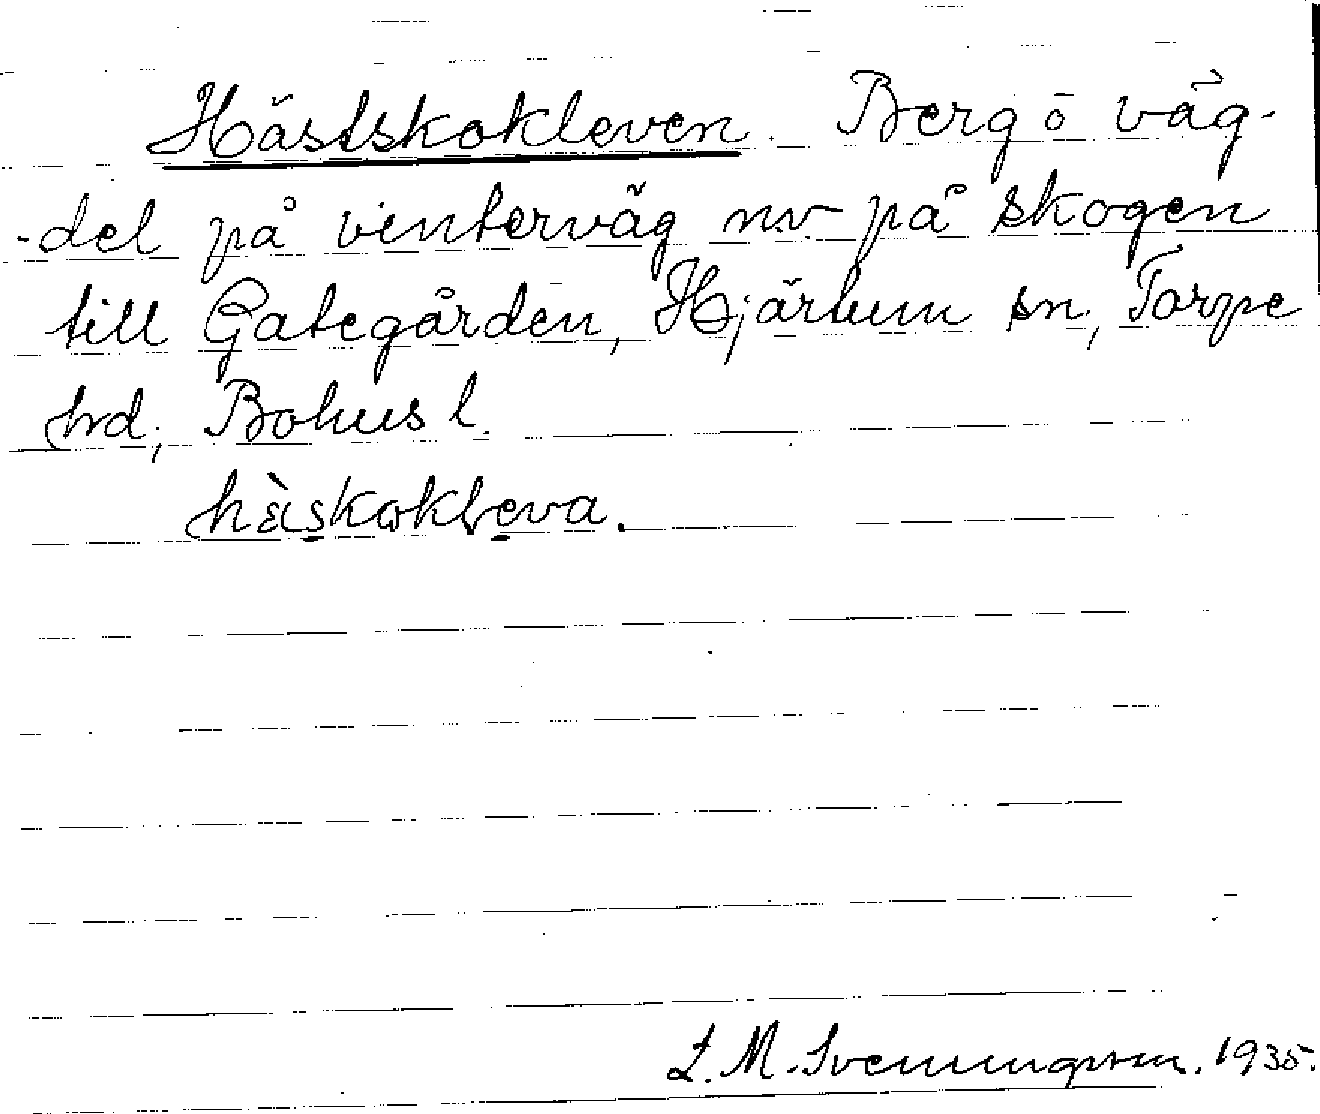 Hästskokleven. Berg o väg-
-del på vinterväg nv på skogen
till Gategården, Hjärtum sn, Torpe
hrd, Bohus l.
hàskokleva.
L. M. Svenningsson. 1935.